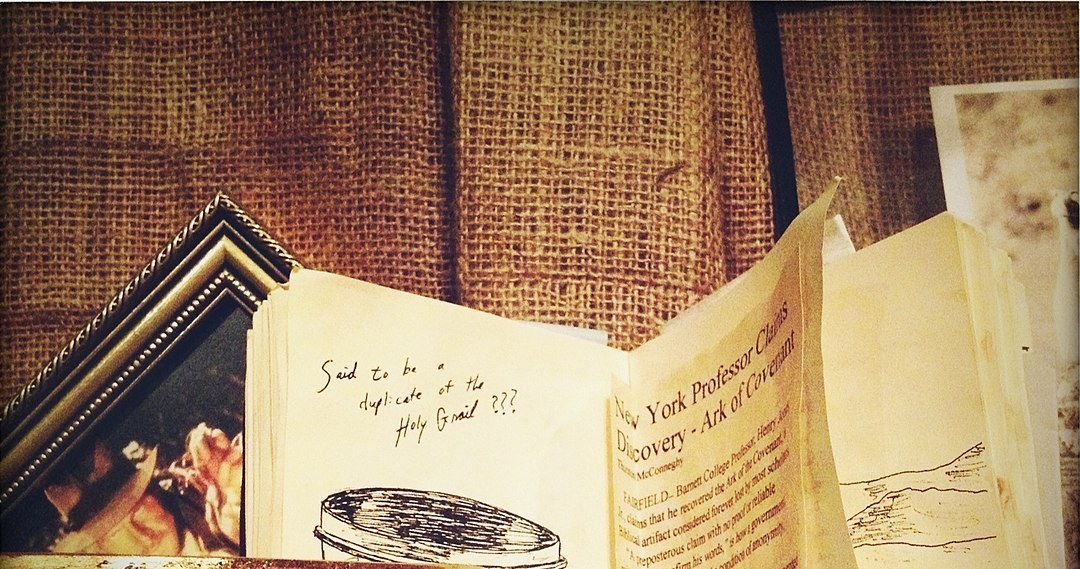 Said to be a
duplicate of the
Holy Grail ???
New York Professor Claims
Discovery - Ark of Covenant
McConneghy
FAIRFIELD-- Barnett College Professor, Henry
claims that he recovered the Ark of the Covenant, a
artifact considered forever lost by most scholars
"A preposterous claim with no proof or reliable
his words," is how a government
condition of anonymity.